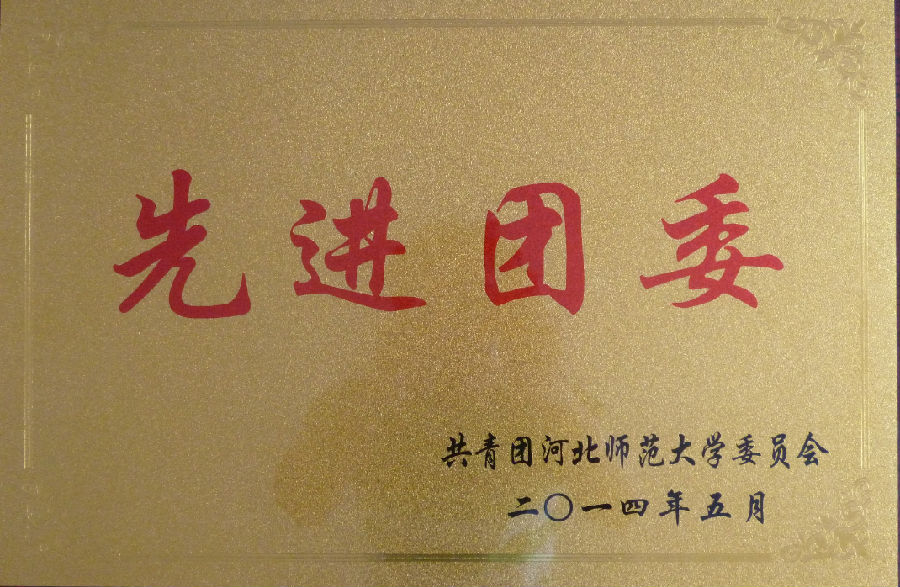 先进团委
共青团河北师范大学委员会
二〇一四年五月